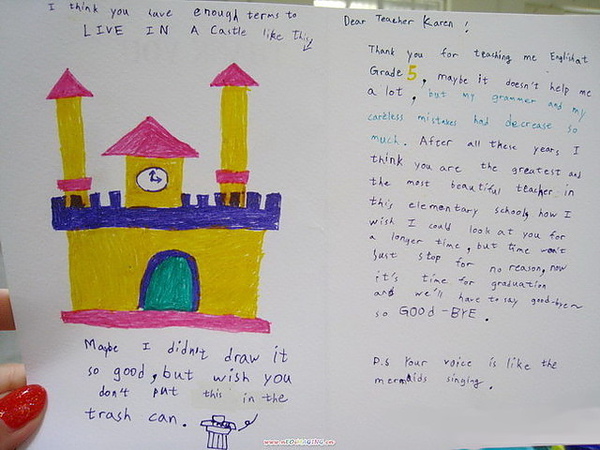 I think you have enough terms to
LIVE IN A Castle like this
Maybe I didn't draw it
so good, but wish you
don't put this in the
trash can.
Dear Teacher Karen!
Thank you for teaching me English at
Grade 5, maybe it doesn't help me
a lot, but my grammer and my
careless mistakes had decrease so
much. After all these years I
think you are the greatest and
the most beautiful teacher in
this elementary school, how I
wish I could look at you for
a longer time, but time won't
just stop for no reason, now
it's time for graduation
and we'll have to say good-bye~
so GOOD-BYE.
P.S Your voice is like the
mermaids singing.